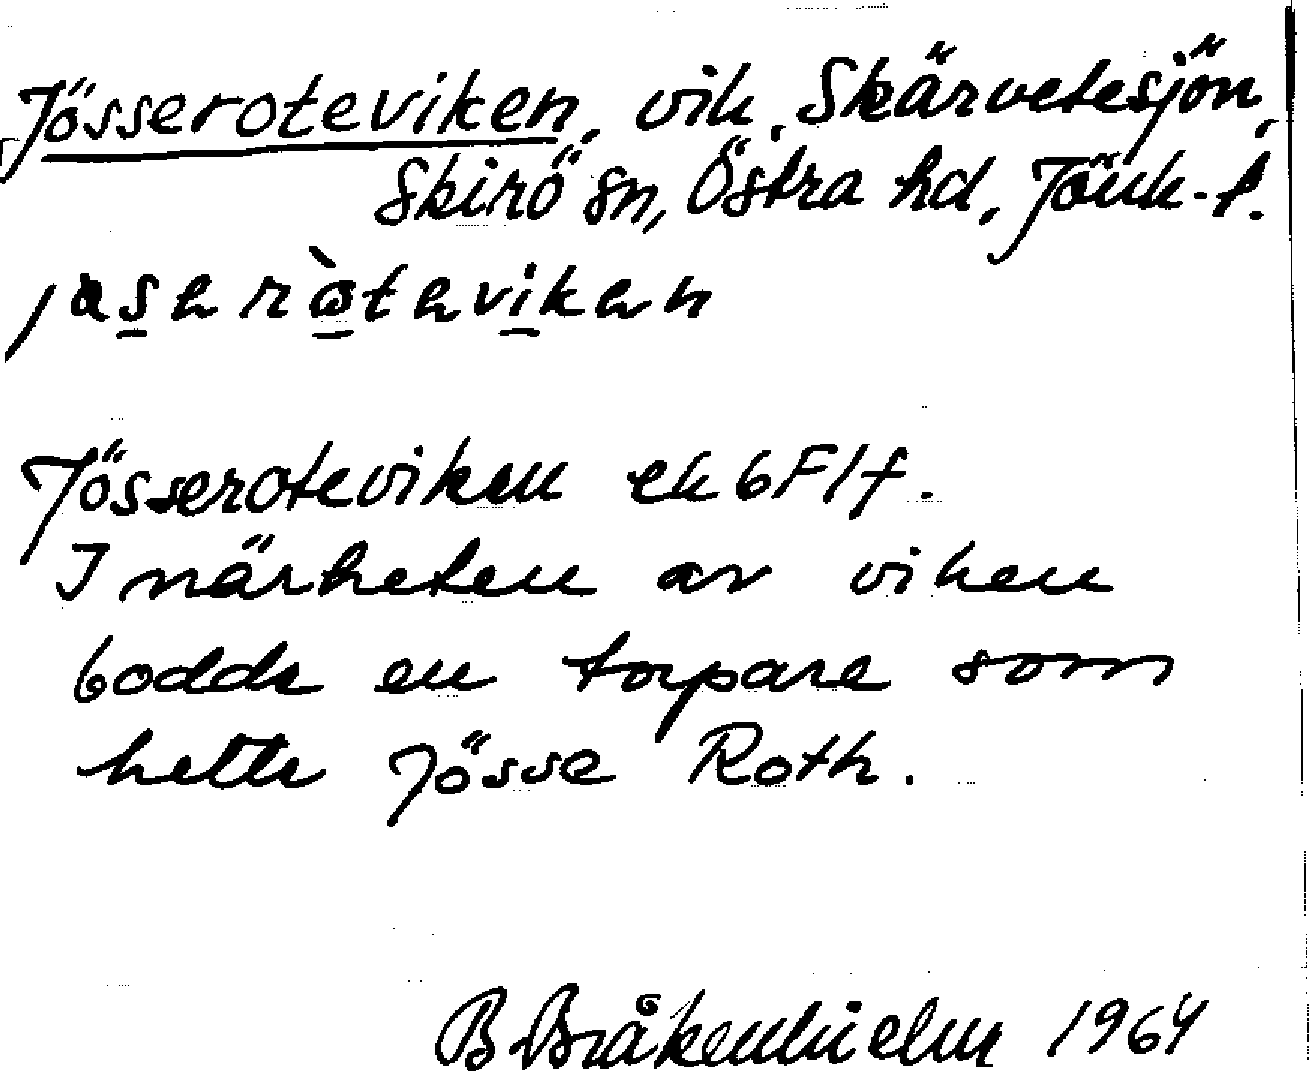 Jösseroteviken, vik, Skärvetesjön,
Skirö sn, Östra hd, Jönk-l.
Jösseroteviken ek 6F1f.
I närheten av viken
bodde en torpare som
hette Jösse Roth.
B Bråkenhielm 1964